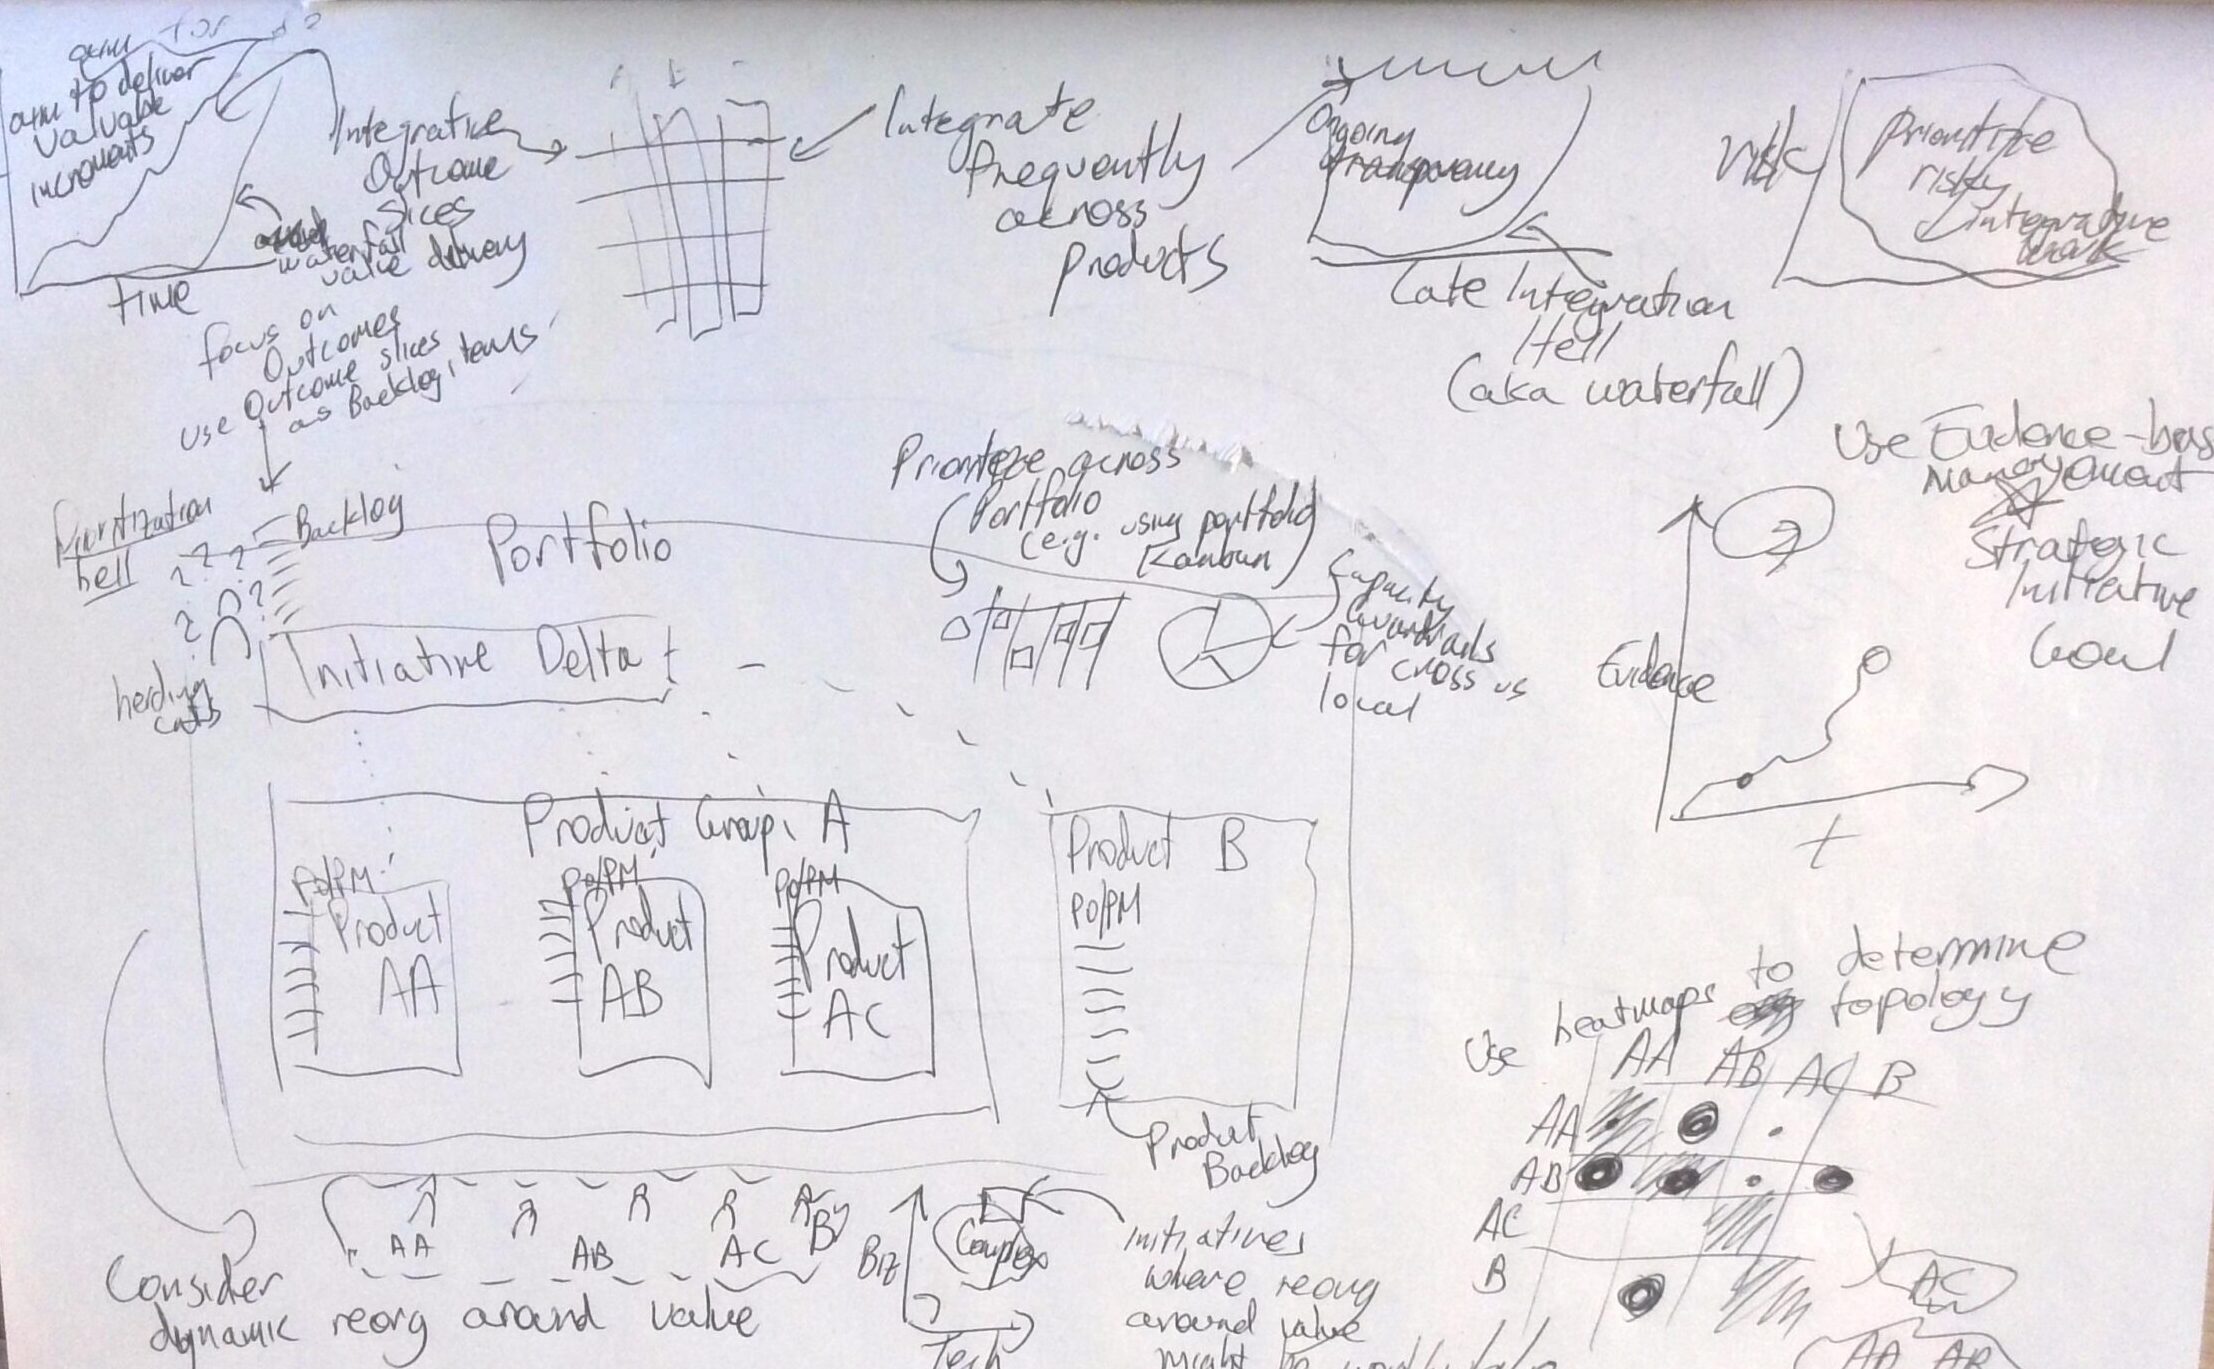 aim for
aim to deliver
valuable
increments
waterfall
value delivery
time
Integrative
Outcome
slices
Integrate
frequently
across
products
Ongoing
transparency
Late Integration
Hell
(aka waterfall)
risk
Prioritize
risky
integrative
work
focus on
Outcomes
use Outcome slices
as Backlog items
Prioritization
hell
? ? ?
? ?
?
herding
cats
Backlog
Portfolio
Initiative Delta
Prioritize across
Portfolio
(e.g. using portfolio
Kanban)
Capacity
Guardrails
for cross vs
local
Use Evidence-bas
Management
Strategic
Initiative
Goal
Evidence
t
Product Group A
PO/PM
Product
AA
PO/PM
Product
AB
PO/PM
Product
AC
Product B
PO/PM
Product
Backlog
AA AB AC B
Consider
dynamic reorg around value
Biz
Complex
Tech
Initiatives
where reorg
around value
might be
Use heatmaps to determine
topology
AA AB AC B
AA
AB
AC
B
AC
AA AB